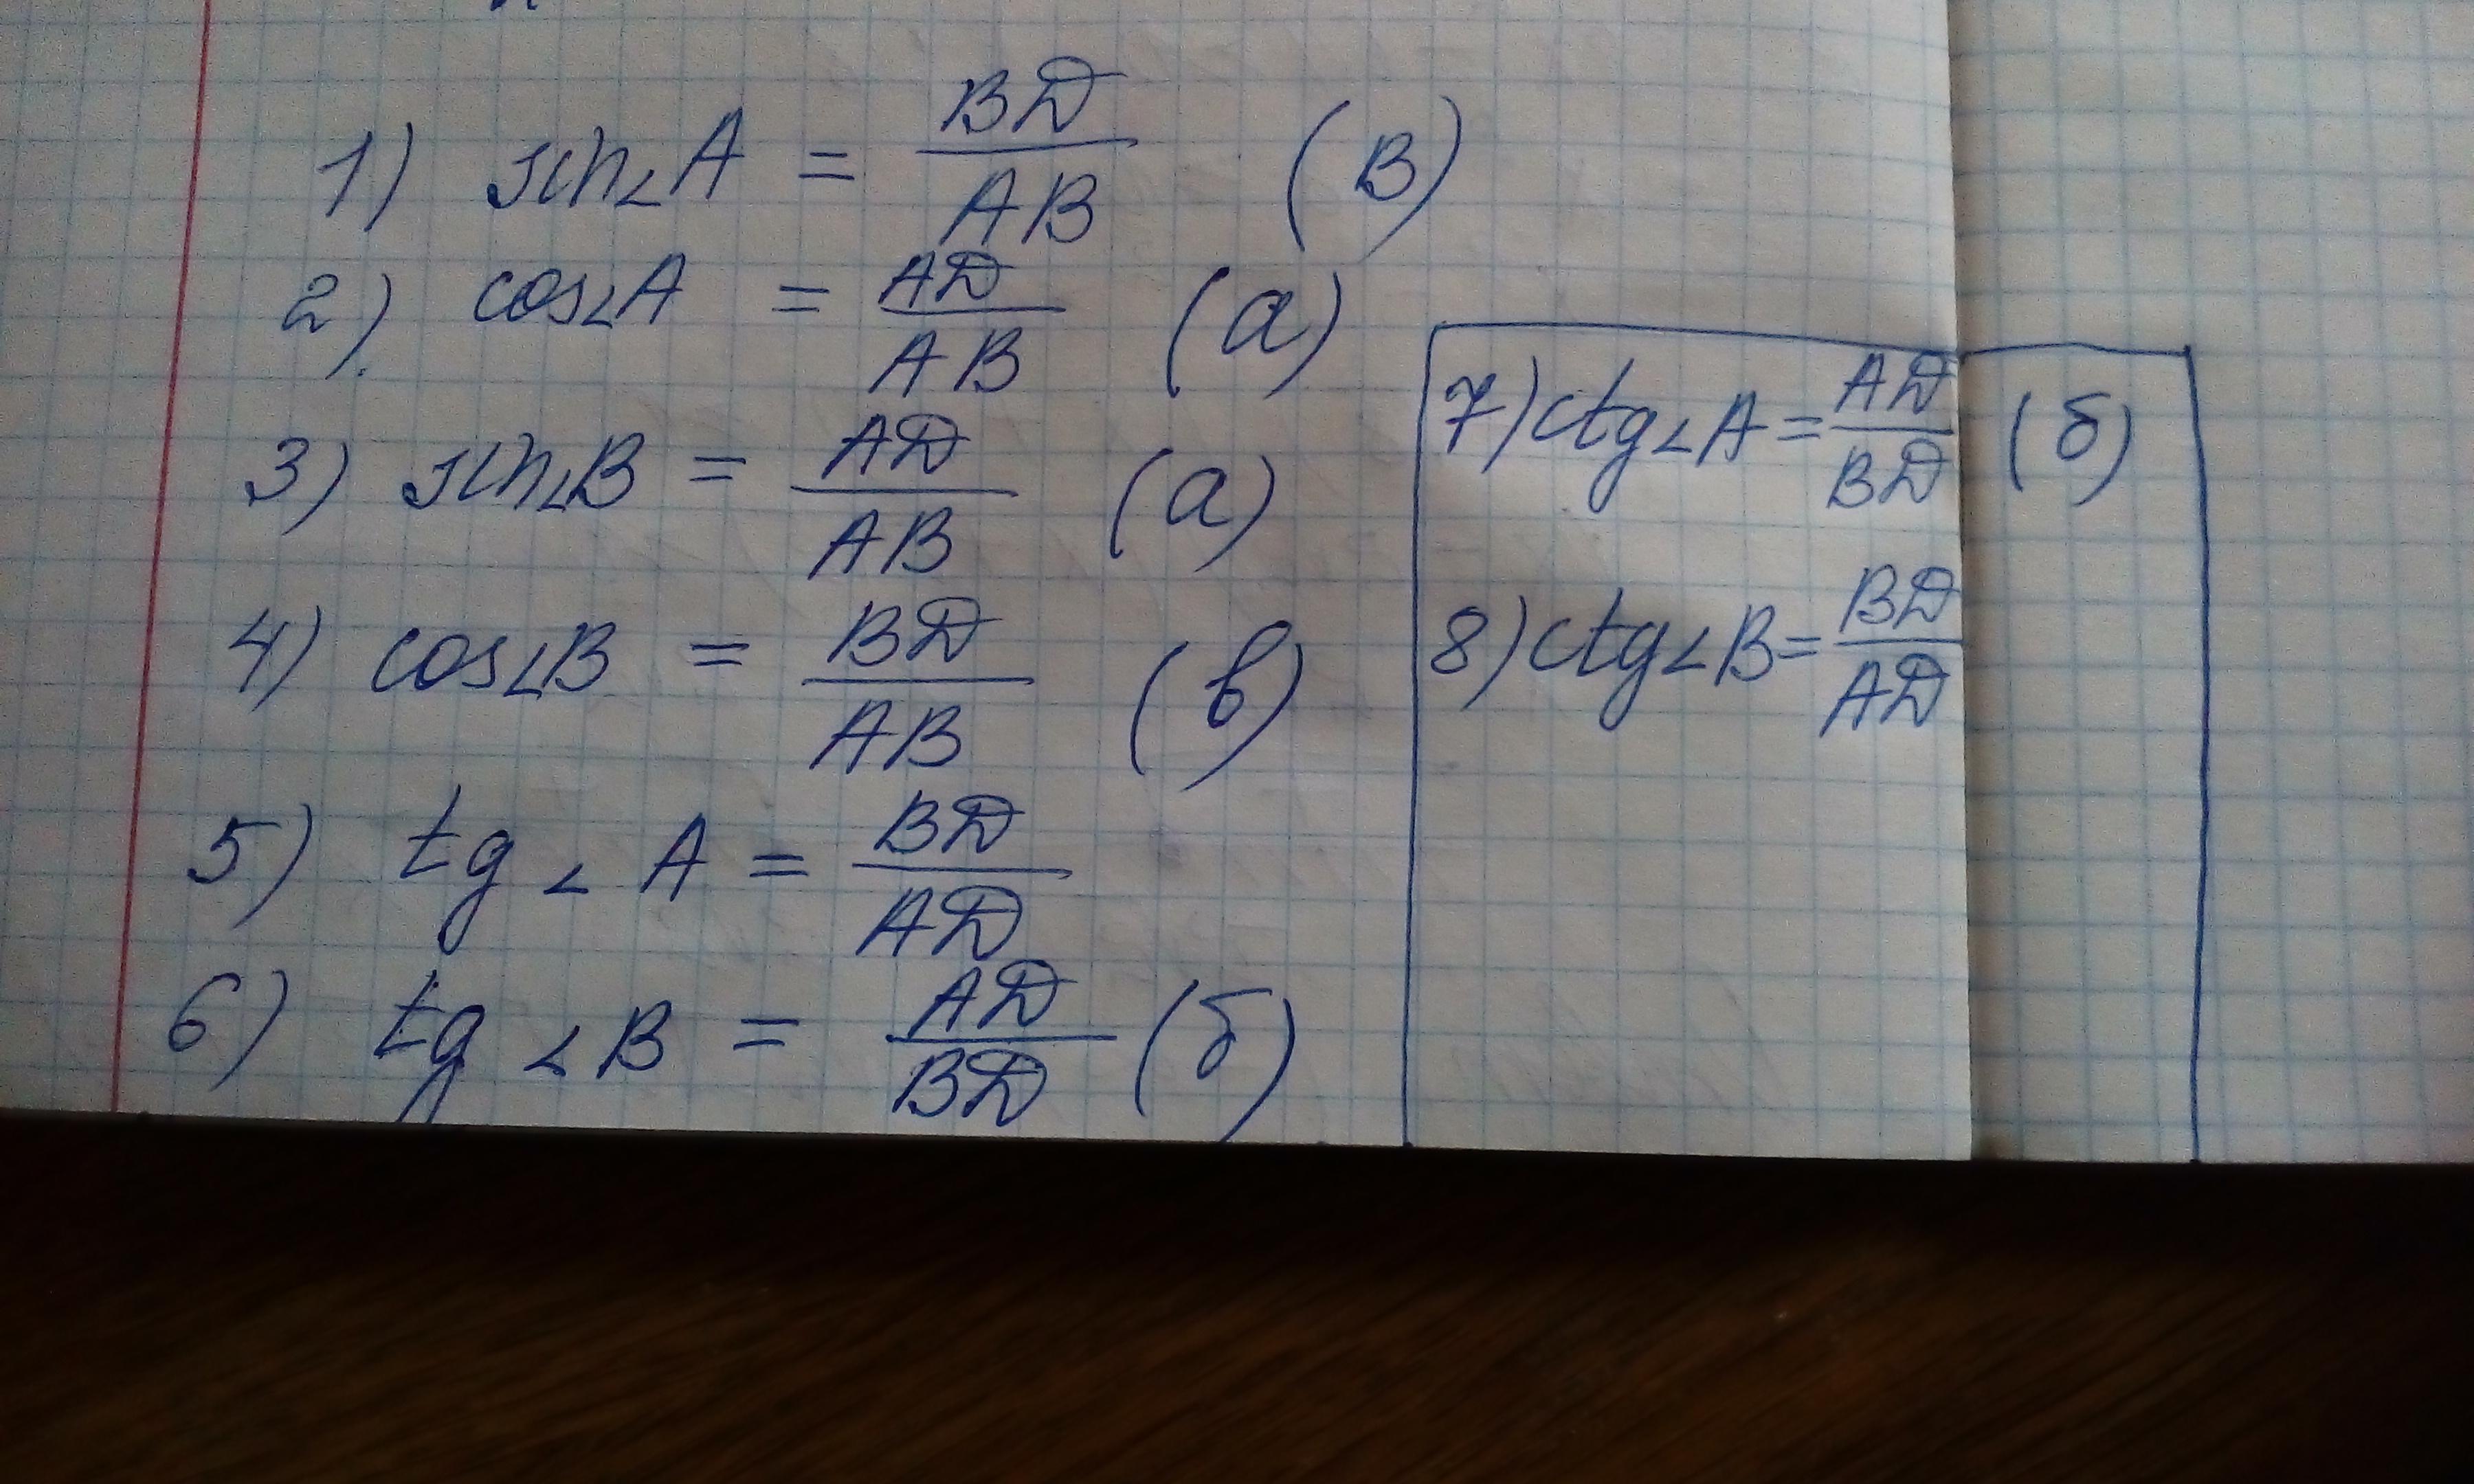 1) sin∠A = BD/AB (B)
2) cos∠A = AD/AB (a)
3) sin∠B = AD/AB (a)
4) cos∠B = BD/AB (в)
5) tg∠A = BD/AD
6) tg∠B = AD/BD (б)
7) ctg∠A = AD/BD (б)
8) ctg∠B = BD/AD